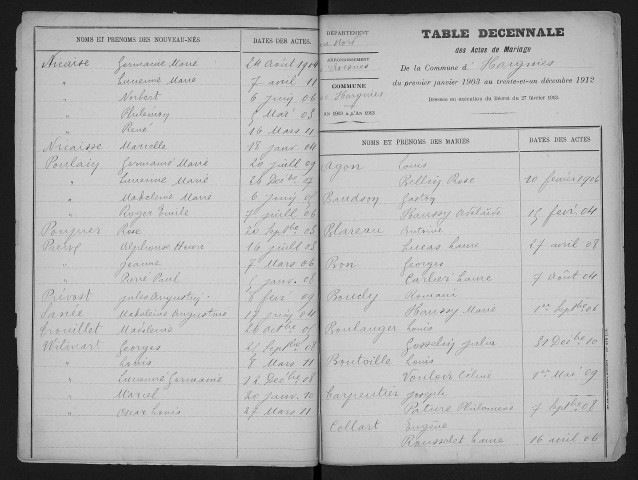 NOMS ET PRENOMS DES NOUVEAU-NÉS DATES DES ACTES.
Nicaise Germaine Marie 24 Août 1904
" Lucienne Marie 7 avril 11
" Norbert 6 juin 06
" Philémon 5 Mai 08
" René 16 Mars 11
Nicaisse Marcelle 18 janv 04
Poulain Germaine Marie 20 juill 09
" Lucienne Marie 26 Décbre 07
" Madeleine Marie 6 juin 05
" Roger Emile 7 juill 06
Rose 20 Septbre 05
Alphonse 16 juill 05
" Jeanne 7 Mars 06
" Paul 5 janv 08
Prévost Jules 8 fév 09
Madeleine Augustine 17 juin 04
Trouillet 26 octbre 05
Witwart Georges 25 Septbre 08
" Louis 8 Mars 11
" Lucienne Germaine 22 Décbre 08
" Marcel 20 janv. 10
" Oscar Louis 27 Mars 11
DÉPARTEMENT
du Nord
ARRONDISSEMENT
d'Avesnes
COMMUNE
d' Hargnies
AN 1903 à l'An 1913
TABLE DECENNALE
des Actes de Mariage
De la Commune d' Hargnies
du premier janvier 1903 au trente-et-un décembre 1912
Dressée en exécution du Décret du 27 février 1903.
NOMS ET PRÉNOMS DES MARIÉS DATES DES ACTES
Agon Louis
Rose 10 février 1906
Baudson Gaston
Haussy Adélaïde 15 févr. 04
Blareau Antoine
Lucas Laure 27 avril 08
Bon Georges
Carlier Laure 7 Août 04
Boudy Romain
Haussy Marie 1er Septbre 06
Boulanger Louis
Gosselin Julia 31 Décbre 10
Boutoille Louis
Céline 1er Mai 09
Carpentier Joseph
Pature Philomène 7 Septbre 08
Collart Eugène
Rousselet Laure 16 avril 06